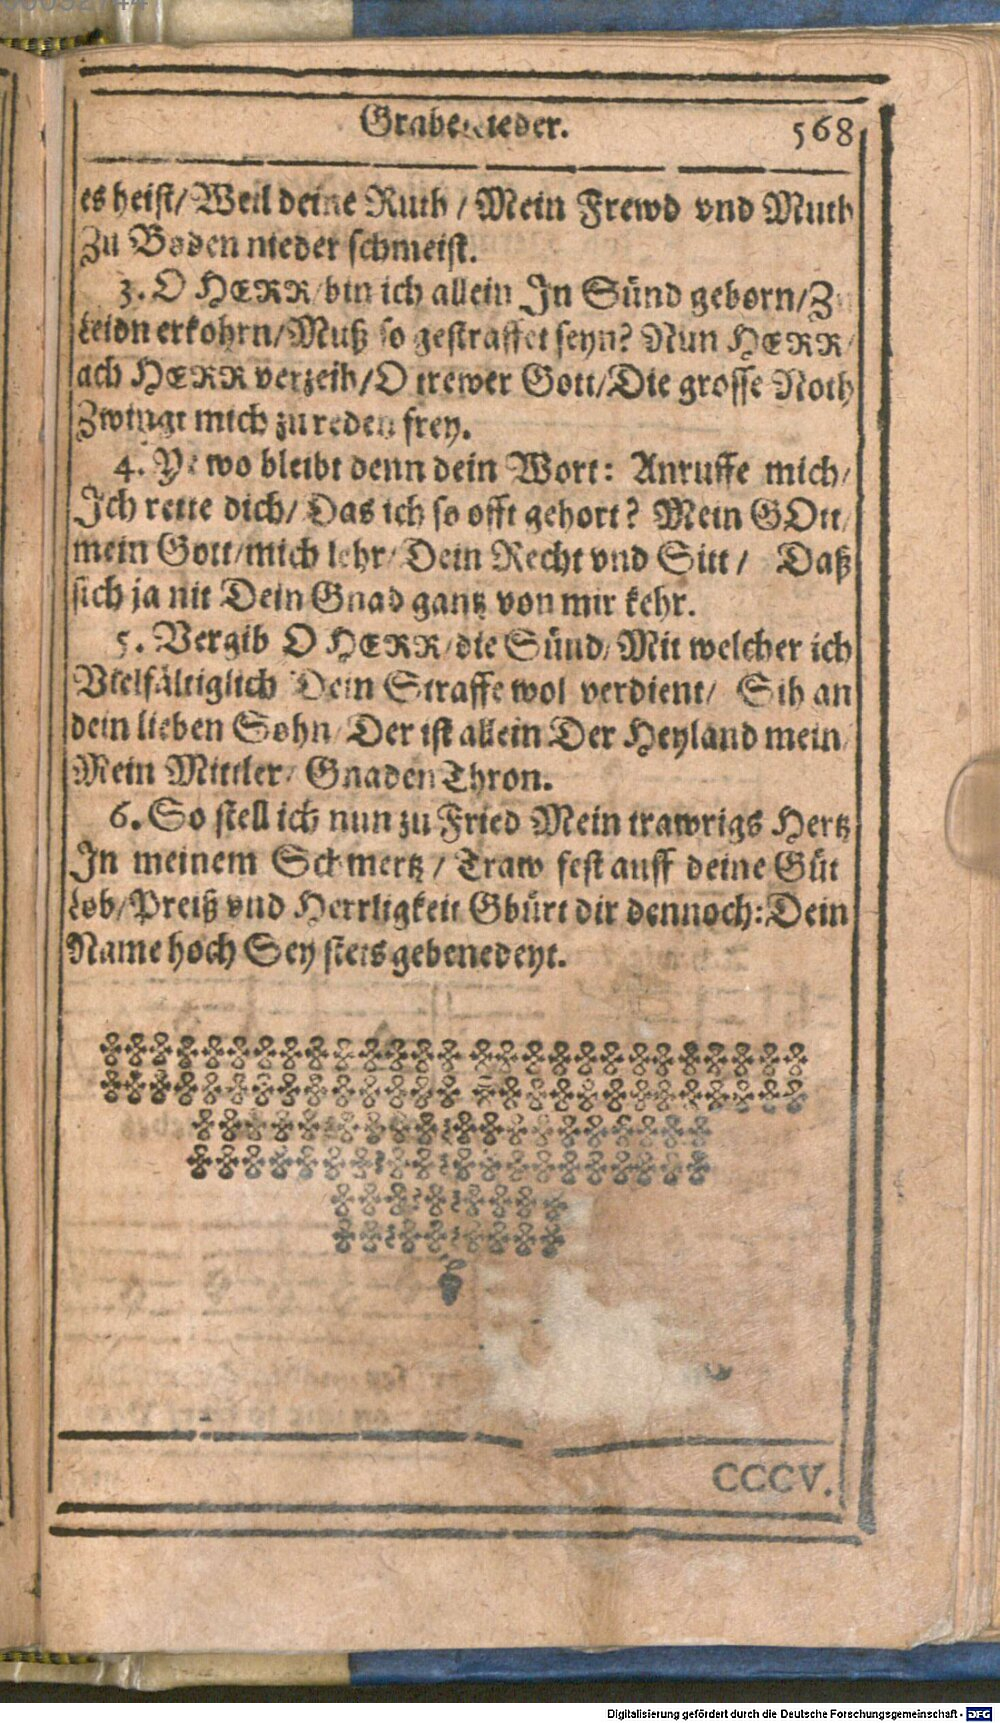 Grabelieder. 568
es heist/ Weil deine Ruth / Mein Frewd vnd Muth
Zu Boden nieder schmeist.
3. O HERR/ bin ich allein In Sünd geborn/
Leidn erkohrn/ Muß so gestraffet seyn? Nun HERR/
ach HERR verzeih/ O trewer Gott/ Die grosse Noth
Zwingt mich zu reden frey.
4. wo bleibt denn dein Wort: Anruffe mich/
Ich rette dich/ Das ich so offt gehort? Mein GOtt/
mein Gott/ mich lehr/ Dein Recht vnd Sitt / Daß
sich ja nit Dein Gnad gantz von mir kehr.
5. Vergib O HERR/ die Sünd/ Mit welcher ich
Vielfältiglich Dein Straffe wol verdient/ Sih an
dein lieben Sohn/ Der ist allein Der Heyland mein/
Mein Mittler/ Gnaden Thron.
6. So stell ich nun zu Fried Mein trawrigs Hertz
In meinem Schmertz / Traw fest auff deine Güt
Lob/ Preiß vnd Herrligkeit Gbürt dir dennoch: Dein
Name hoch Sey stets gebenedeyt.
CCCV.
Digitalisierung gefördert durch die Deutsche Forschungsgemeinschaft - DFG